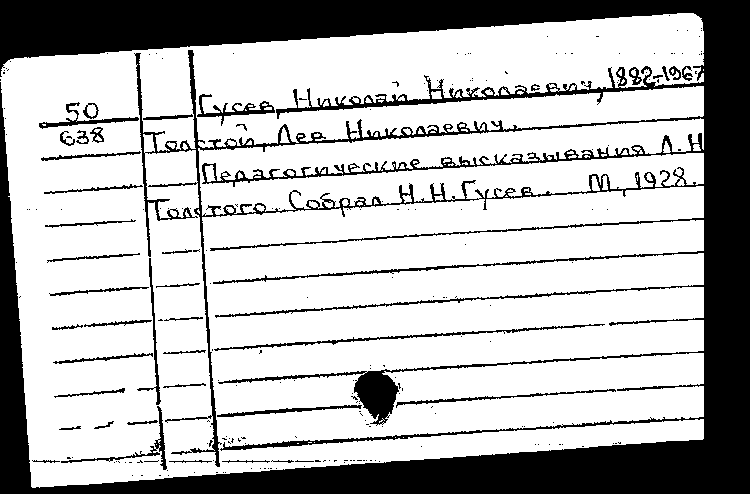 50
638
Гусев, Николай Николаевич, 1882-1967
Толстой, Лев Николаевич.
Педагогические высказывания Л.Н
Толстого. Собрал Н.Н.Гусев. М., 1928.